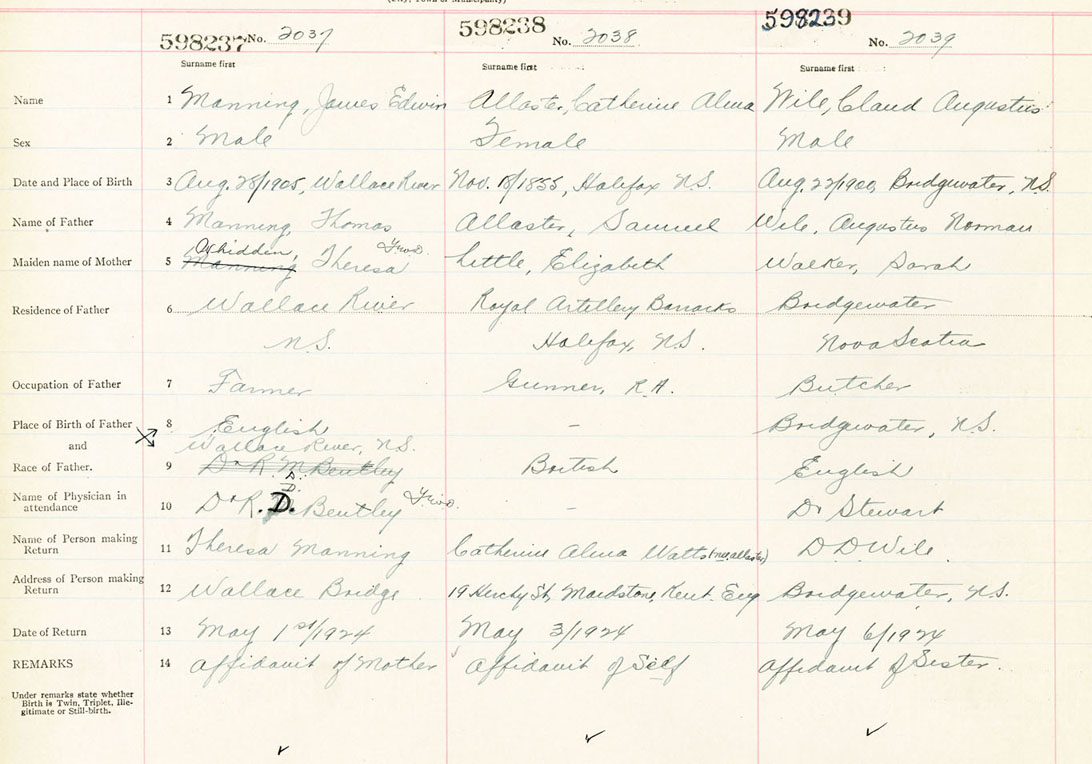 (City, Town or Municipality)
598237 No. 2037 598238 No. 2038 598239 No. 2039
Surname first Surname first Surname first
Name 1 Manning, James Edwin Allaster, Catherine Alma Wile, Claud Augustus
Sex 2 Male Female Male
Date and Place of Birth 3 Aug. 28/1905, Wallace River Nov. 18/1855, Halifax N.S. Aug. 22/1900, Bridgewater, N.S.
Name of Father 4 Manning, Thomas Allaster, Samuel Wile, Augustus Norman
Maiden name of Mother 5 Manning, Theresa Little, Elizabeth Walker, Sarah
Residence of Father 6 Wallace River Royal Artillery Barracks Bridgewater
N.S. Halifax, N.S. Nova Scotia
Occupation of Father 7 Farmer Gunner, R.A. Butcher
Place of Birth of Father 8 English – Bridgewater, N.S.
and Wallace River, N.S.
Race of Father. 9 Dr R. M Bentley British English
Name of Physician in
attendance 10 Dr R. D. Bentley – Dr Stewart
Name of Person making
Return 11 Theresa Manning Catherine Alma Watts (nee Allaster) D D Wile
Address of Person making
Return 12 Wallace Bridge 19 St, Maidstone, Kent. Eng Bridgewater, N.S.
Date of Return 13 May 1st/1924 May 3/1924 May 6/1924
REMARKS 14 Affidavit of Mother Affidavit of Self Affidavit of Sister.
Under remarks state whether
Birth is Twin, Triplet, Ille-
gitimate or Still-birth.